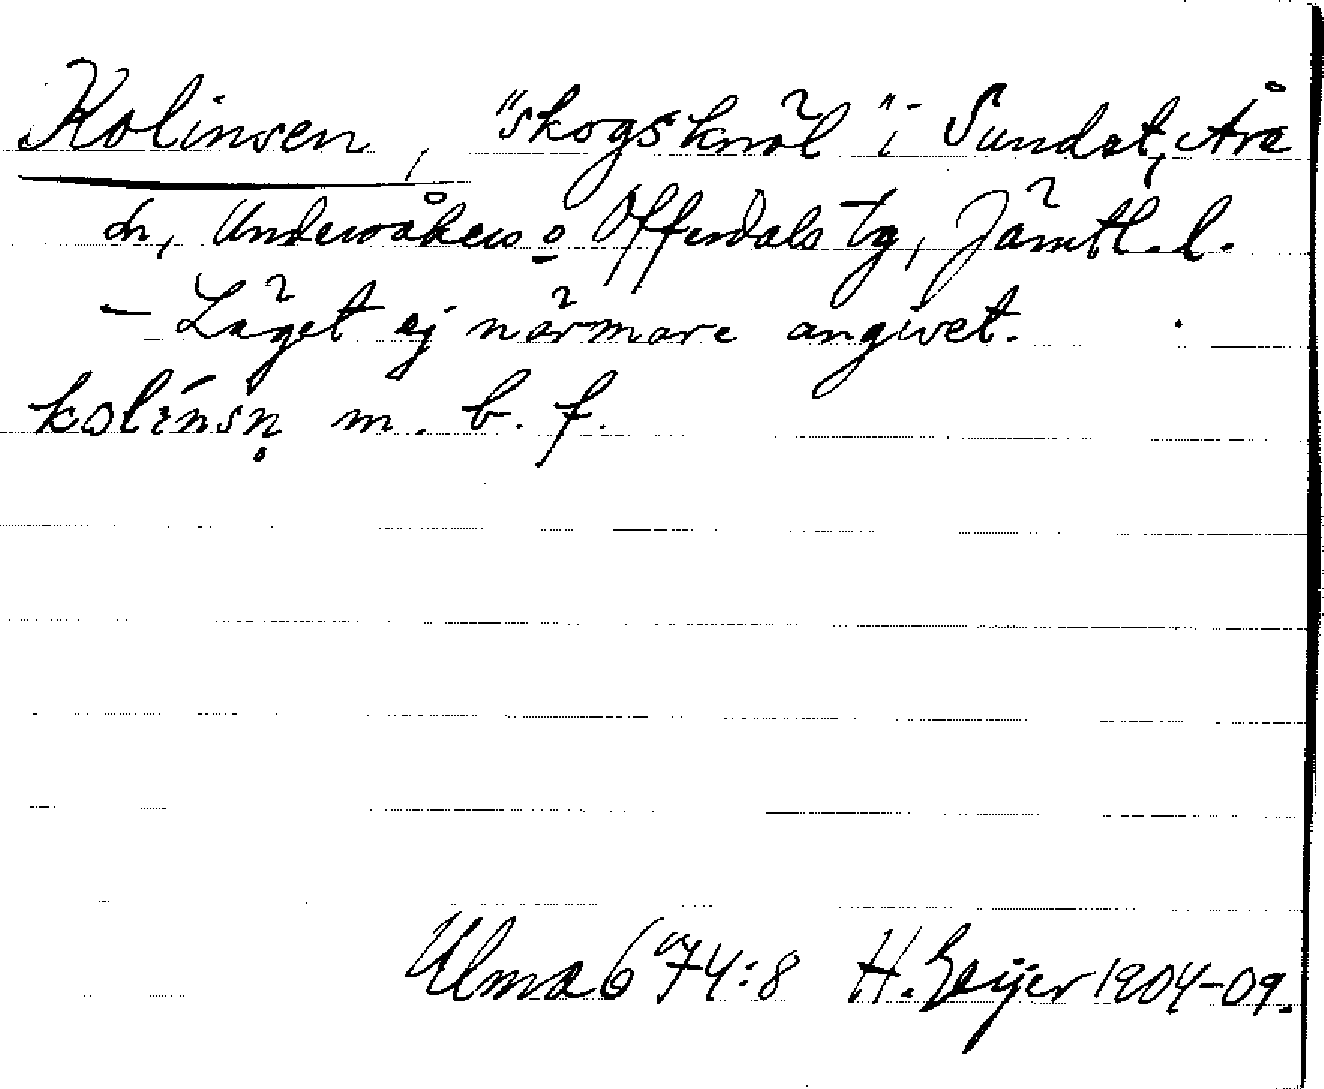 Kolinsen, "skogsknöl" i Sundet, Åre
sn, Undersåkers o Offerdals tg, Jämtl. l.
– Läget ej närmare angivet.
kolínsn̥ m. b. f.
Ulma 674:8 H. Geijer 1904-09.